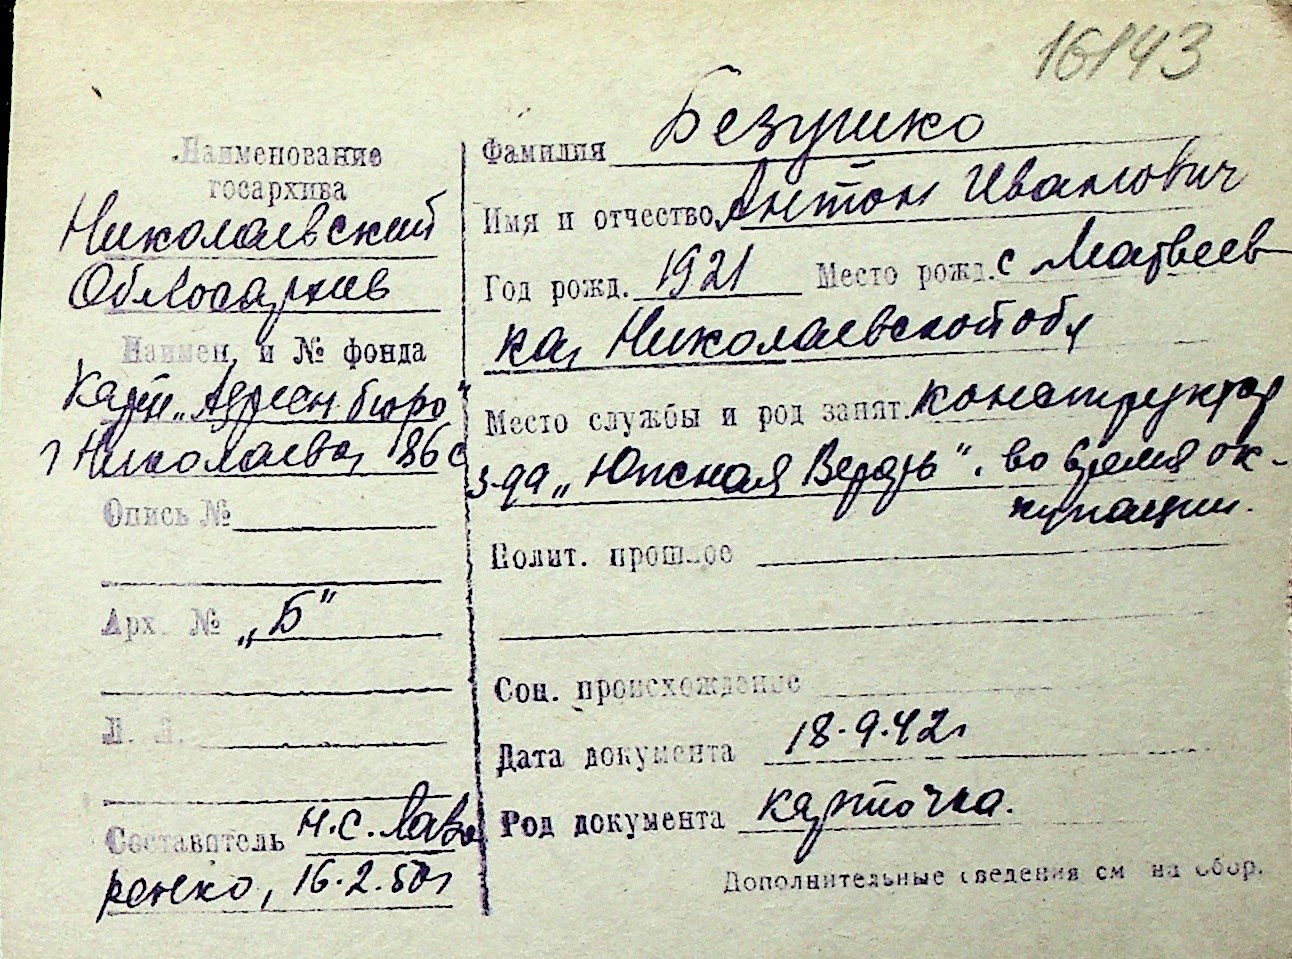 16143
Наименование
госархива
Николаевский
Облгосархив
Наимен. и № фонда
Карт. „Адресн. бюро"
г Николаева, 186 с
Опись №
Арх. № „Б"
Л. Л.
Составитель Н. С. Лавре
ренко, 16.2.50г
Фамилия Безушко
Имя и отчество Антон Иванович
Год рожд. 1921 Место рожд. с Матвеев
ка, Николаевской обл
Место службы и род занят. конструктор
з-да „Южная Верфь". во время ок-
купации.
Полит. прошлое
Соц. происхождение
Дата документа 18.9.42г
Род документа карточка.
Дополнительные сведения см на обор.